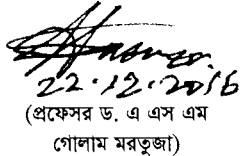 22.12.2016
(প্রফেসর ড. এ এস এম
গোলাম মরতুজা)